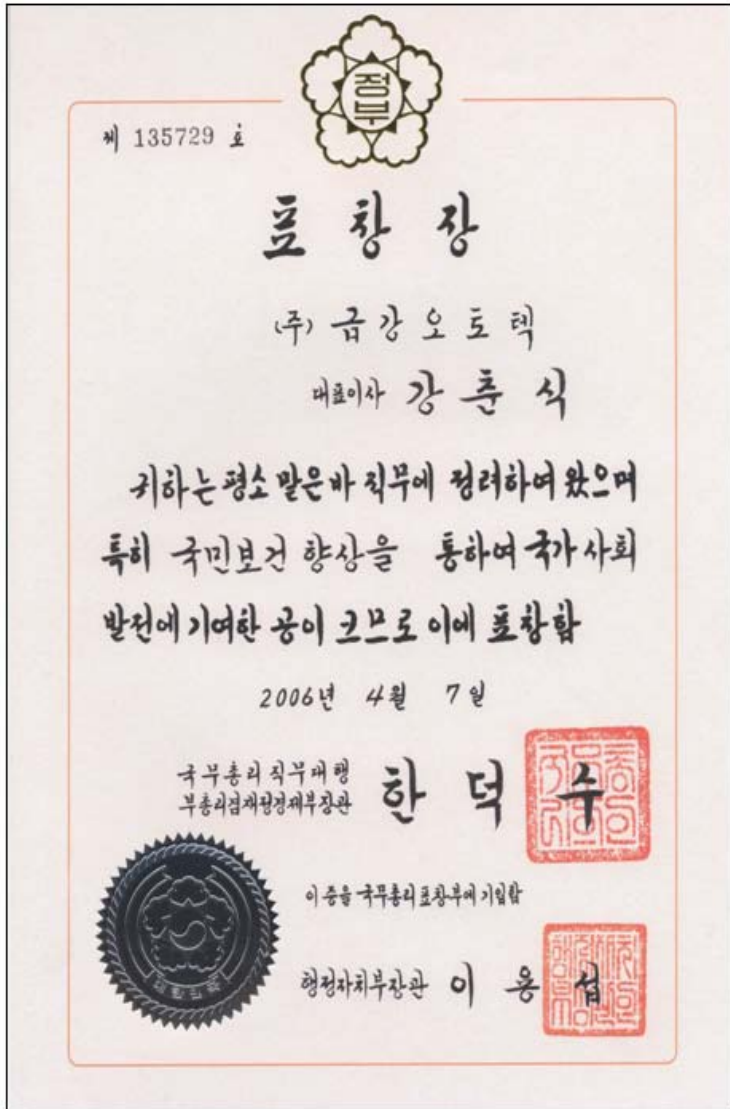 정부
제 135729 호
표창장
(주) 금강오토텍
대표이사 강춘식
귀하는 평소 맡은바 직무에 정려하여 왔으며
특히 국민보건 향상을 통하여 국가사회
발전에 기여한 공이 크므로 이에 표창함
2006년 4월 7일
국무총리직무대행
부총리겸재정경제부장관 한덕수
이 증을 국무총리표창부에 기입함
행정자치부장관 이용섭
대한민국